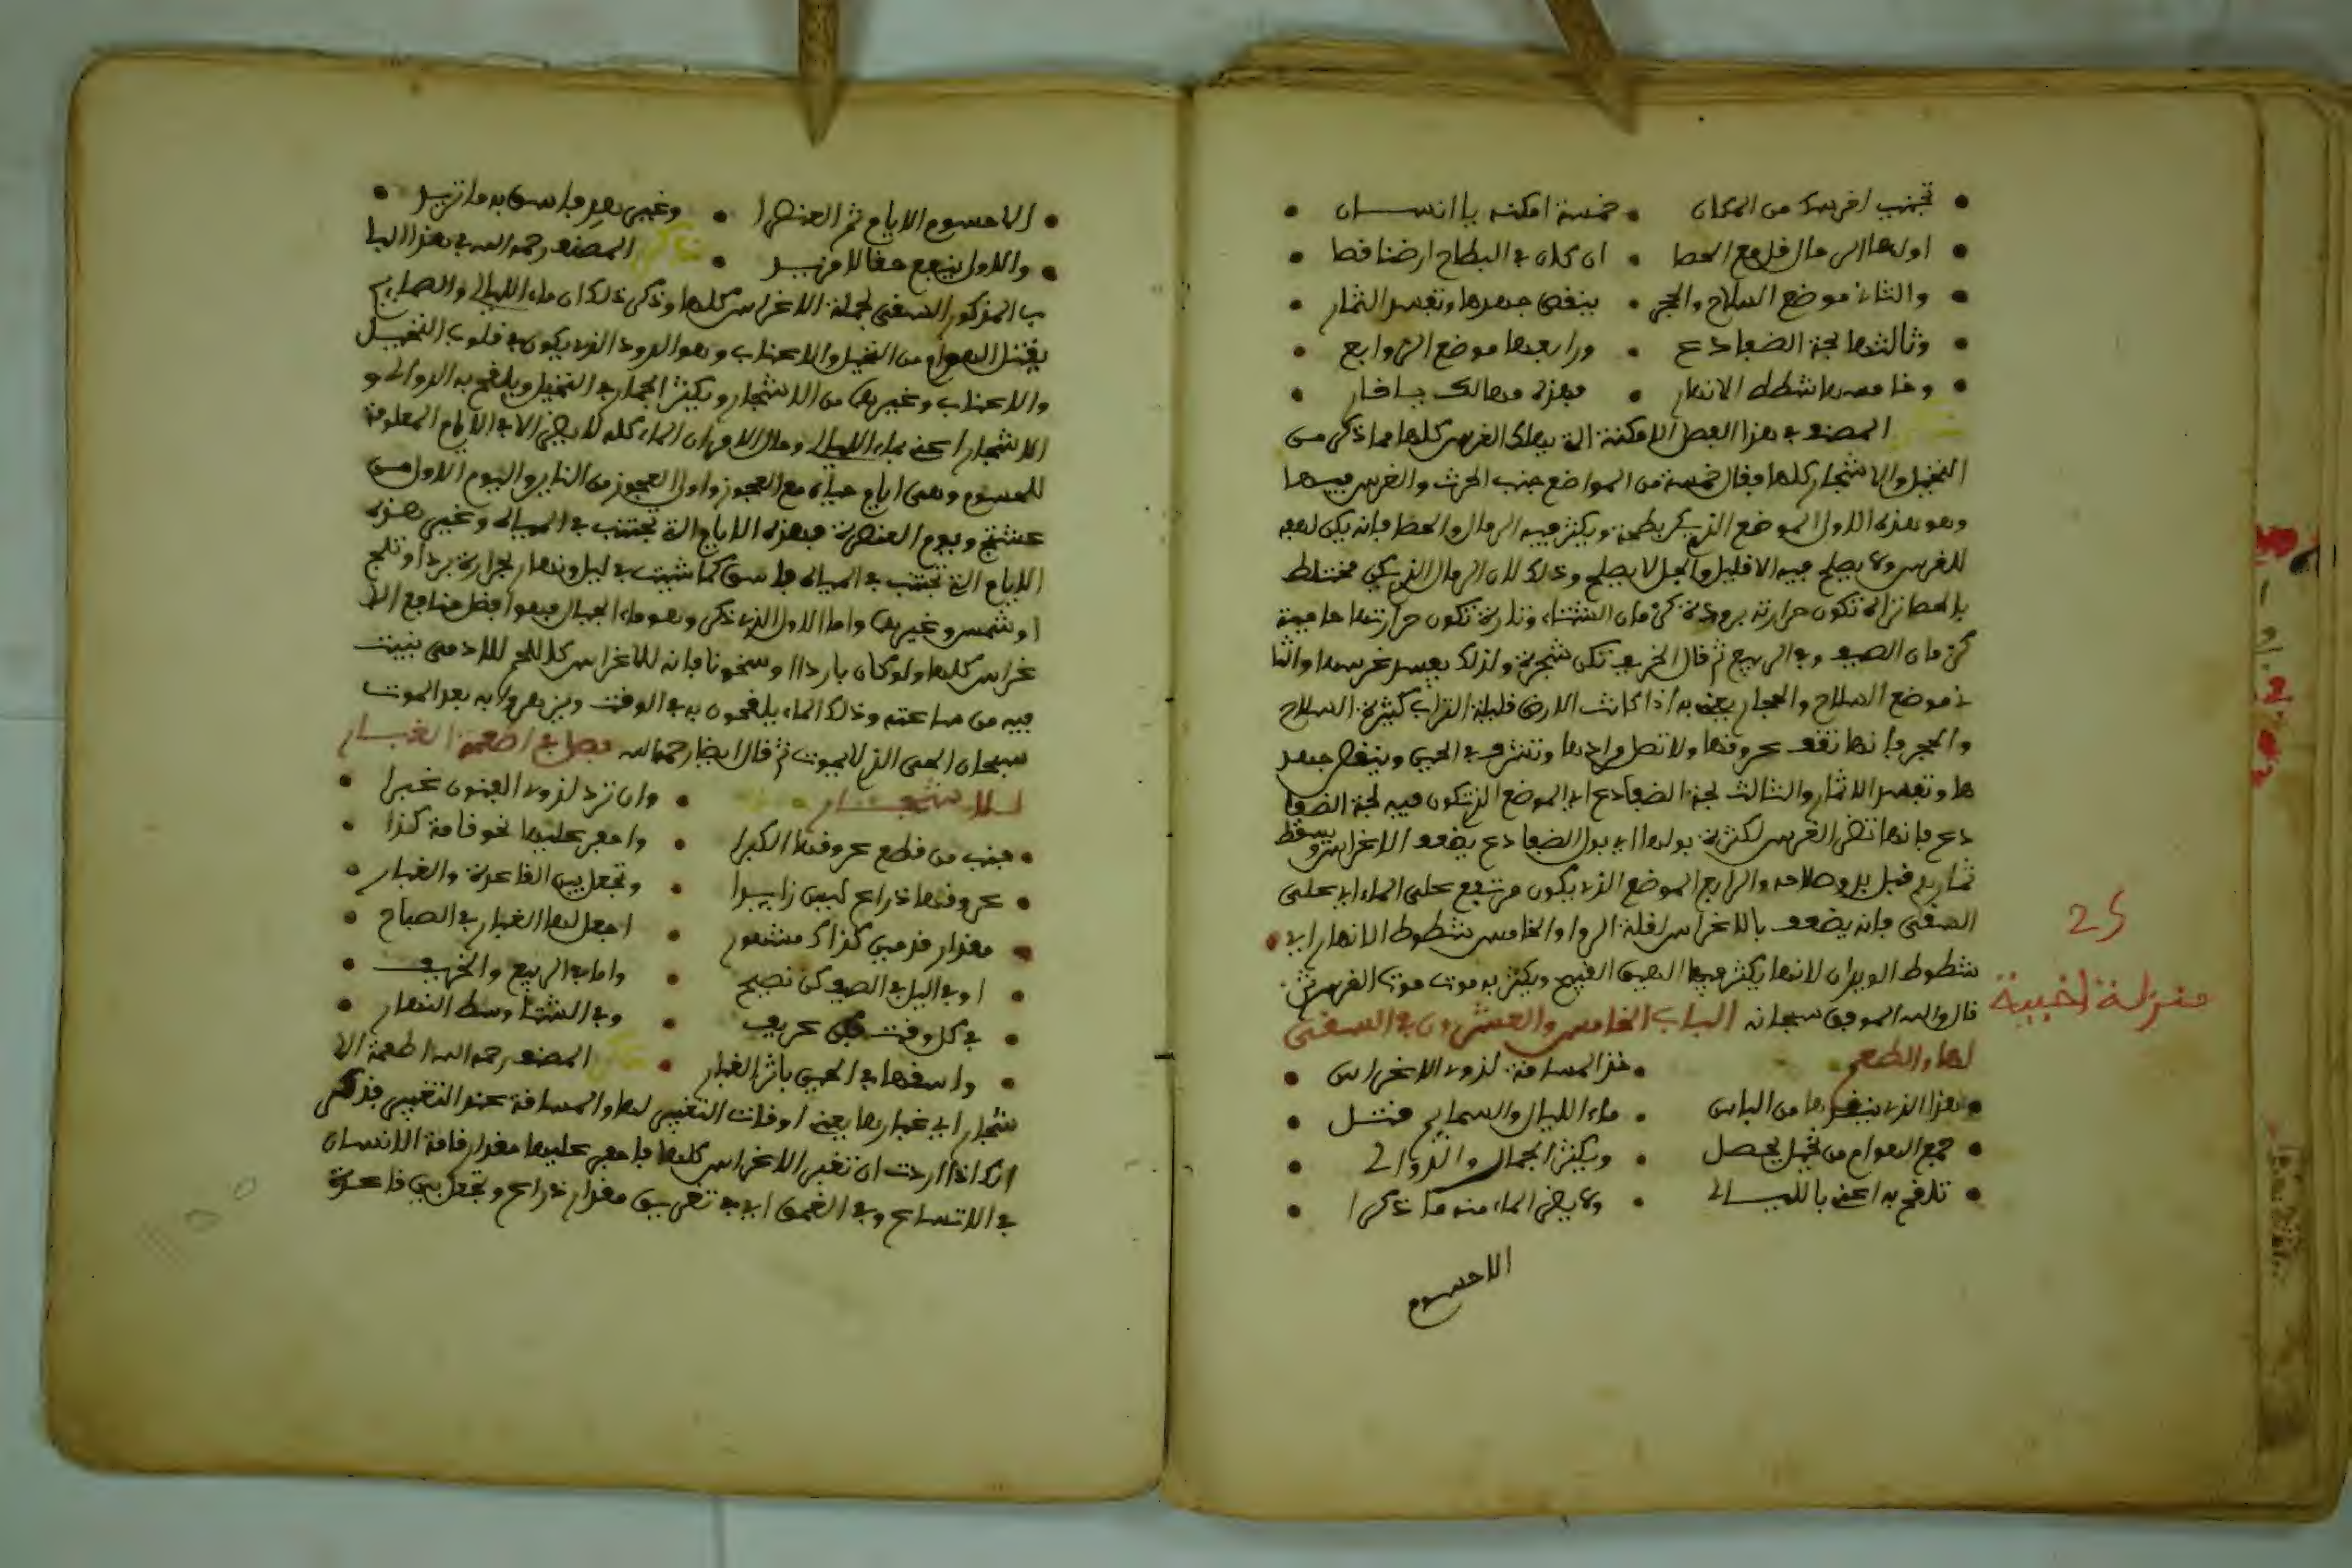 تجنب اغرسك من المكان • خمسة امكنه يا انسان
اولها الرمال قل مع الحصا • ان كان في البطاح ارضنا قصا
والثان موضع السلاح والحجر • ينقص جهدها وتفسد الثمار
وثالثها لجة الضفادع • ورابعها موضع الزوابع
وخامسها شطط الانهار • فهذه مهالك يا فار
المصنف في هذا الفصل الامكنة التي يهلك الغرس كلها مما ذكر من
النخيل والاشجار كلها فقال خمسة من المواضع جنب الحرث والغرس فيها
وهو هذه الاول الموضع الذي يكثر فيه الرمال والحصا فانه
للغرس ولا يصلح فيه الا قليل والجل لا يصلح وذلك لان الرمال الذي يكن مختلط
بالحصا تراه تكون حرارته برودة كزمان الشتاء وتارة تكون حرارتها حامية
كزمان الصيف وفي الربيع ثم قال الخريف تكن شجرة ولذلك يفسد غرسها والثا
ن موضع السلاح والحجار يعني به اذا كانت الارض قليلة التراب كثيرة السلاح
والحجر فانها تقف عروقها ولا تصل وتنقص جهد
ها وتفسد الاثمار والثالث لجة الضفادع اي الموضع الذي تكون فيه لجة الضفا
دع فانها تضر الغرس لكثرة بولها اي بول الضفادع يضعف الاغراس وتسقط
ثماره قبل بدو صلاحه والرابع الموضع الذي يكون مرتفع على الماء اي على
السقي فانه يضعف بالاغراس لقلة الروا والخامس شطوط الانهار اي
شطوط الويدان لانها يكثر فيها الضيق القبيح ويكثر به موت الغرس ثم
قال والله الموفق سبحانه الباب الخامس والعشرون في السقي
لها والطعم • خذ المسافة لذوي الاغراس
وهذا الذي ينقذها من الباس • ماء الليال والسمايم قتل
جمع الهوام من نخيل يحصل • ويكثر الجمار والدوالي
تلقح به اعني بالليالي • ولا يضر الماء منه ما ذكرا
الاحسوم
25
منزلة اخبية
الا حسوم الايام ثم العنصرا • وغير بعد فاسق به ما تريد
والاول ينفع حقا لا مزيد • المصنف رحمه الله في هذا البا
ب المذكور السقي لجملة الاغراس كلها وذكر ذلك ان ماء الليالي والصمايم
يقتل الهوام من النخيل والاعناب وهو الدود الذي يكون في قلوب النخيل
والاعناب وغيرها من الاشجار ويكثر الجمار في النخيل ويلقح به الدوالي و
الاشجار اعني بماء الليالي وقال الماء كله لا يضر الا في الايام المعلومة
للحسوم وهي ايام حياة مع العجوز واول العجوز من الناير واليوم الاول من
غشت ويوم العنصرة فهذه الايام التي تجتنب في المياه وغير هذه
الايام التي تجتنب في المياه فاسق كما شيت في ليل ونهار بحرارة برد او ثلج
او شمس وغيرها واما الاول الذي ذكر وهو ماء الجبال فهو افضل منافع الا
غراس كلها ولو كان باردا او سخونا فانه للاغراس كاللحم للادمي ينبت
فيه من ساعته وذلك الماء يلقحون به في الوقت ويزهروا به بعد الموت
سبحان الحي الذي لا يموت ثم قال ايضا رحمه الله فصل في اطعمة الغبار
للاشجار • وان ترد لذوي الغنون غبرا
جنب من قطع عروقها الكبرا • واحفر عليها نحو قامة كذا
عروقها ذراع لبين زايدا • وتجعل بين القاعدة والغبار
مقدار قدمين كذاك مشهور • اجعل لها الغبار في الصباح
او في اليل في الصيف كن نصيح • واما في الربيع والخريف
في كل وقت كن عريف • وفي الشتا وسط النهار
واسقها في الحين باثر الغبار • المصنف رحمه الله اطعمة الا
شجار اي غبارها يعني اوقات التغبير لها والمسافة عند التغبير فذكر
انك اذا اردت ان تغبر الاغراس كلها فاحفر عليها مقدار قامة الانسان
في الاتساع وفي الغمق اي في تعريق مقدار ذراع وتجعل بين قاعدة